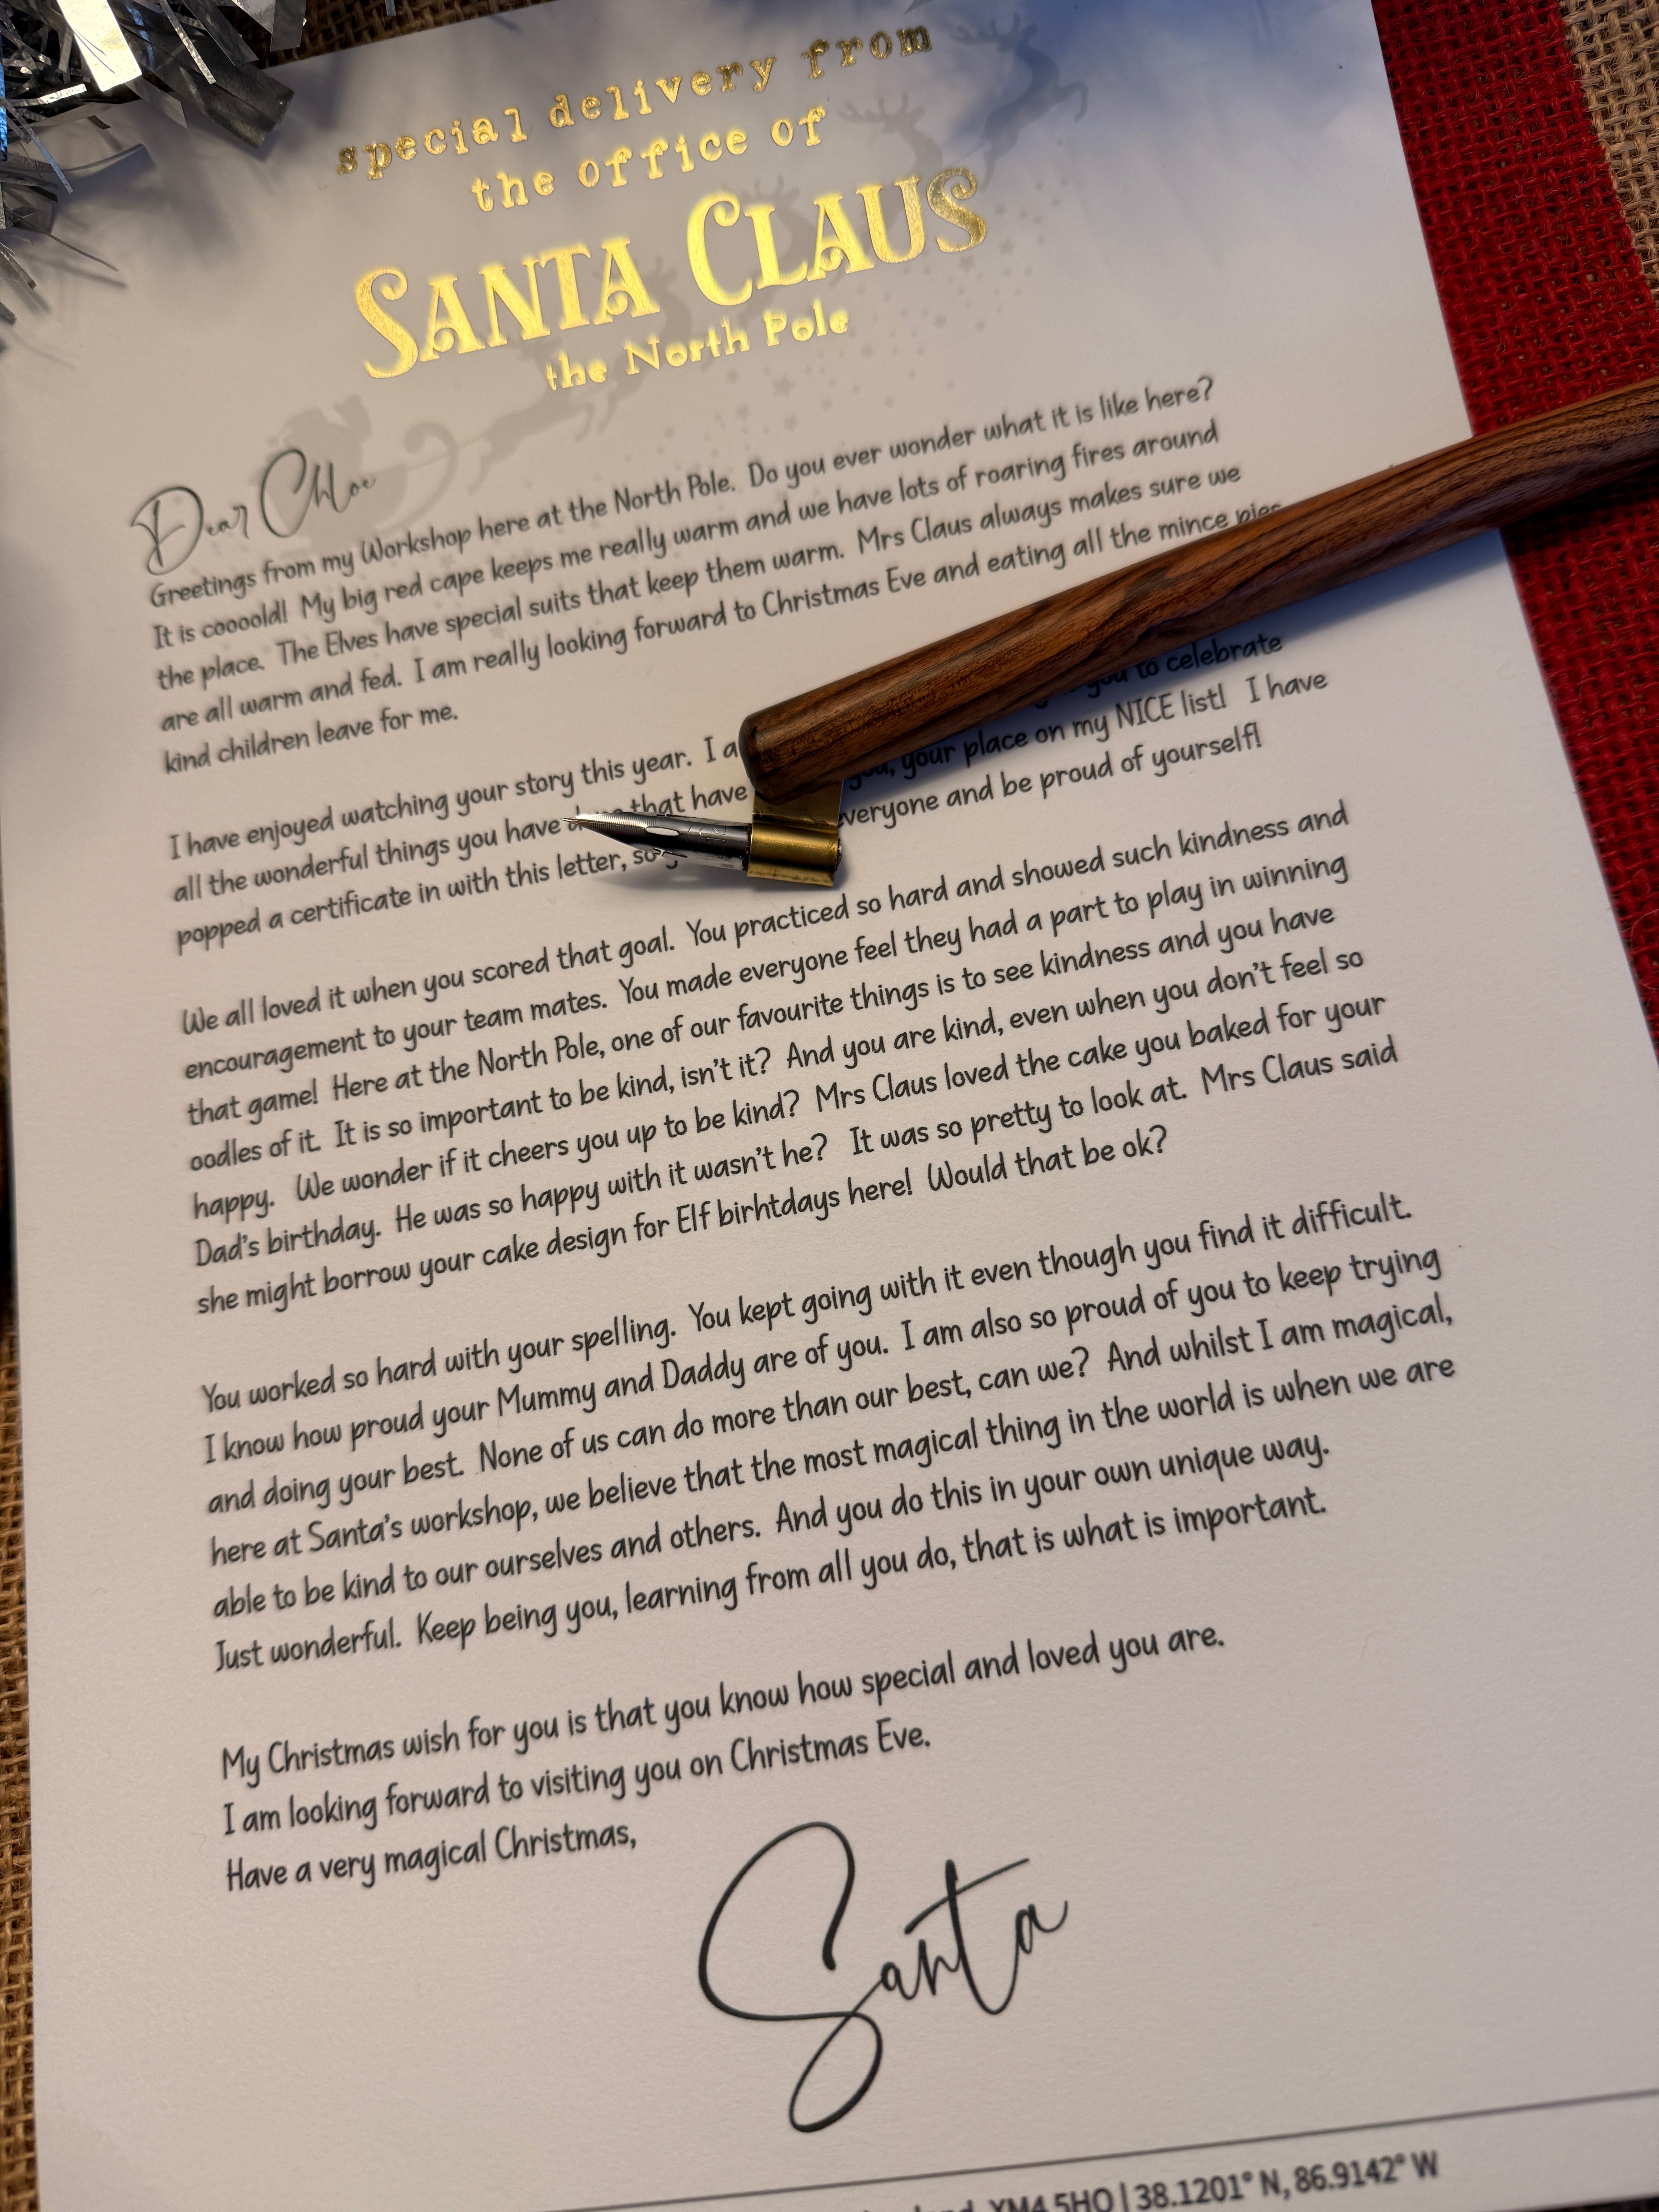 special delivery from
the office of
SANTA CLAUS
the North Pole
Dear Chloe
Greetings from my Workshop here at the North Pole. Do you ever wonder what it is like here?
It is coooold! My big red cape keeps me really warm and we have lots of roaring fires around
the place. The Elves have special suits that keep them warm. Mrs Claus always makes sure we
are all warm and fed. I am really looking forward to Christmas Eve and eating all the mince pies
kind children leave for me.
I have enjoyed watching your story this year. I you to celebrate
all the wonderful things you have that have your place on my NICE list! I have
popped a certificate in with this letter, everyone and be proud of yourself!
We all loved it when you scored that goal. You practiced so hard and showed such kindness and
encouragement to your team mates. You made everyone feel they had a part to play in winning
that game! Here at the North Pole, one of our favourite things is to see kindness and you have
oodles of it. It is so important to be kind, isn't it? And you are kind, even when you don't feel so
happy. We wonder if it cheers you up to be kind? Mrs Claus loved the cake you baked for your
Dad's birthday. He was so happy with it wasn't he? It was so pretty to look at. Mrs Claus said
she might borrow your cake design for Elf birhtdays here! Would that be ok?
You worked so hard with your spelling. You kept going with it even though you find it difficult.
I know how proud your Mummy and Daddy are of you. I am also so proud of you to keep trying
and doing your best. None of us can do more than our best, can we? And whilst I am magical,
here at Santa's workshop, we believe that the most magical thing in the world is when we are
able to be kind to our ourselves and others. And you do this in your own unique way.
Just wonderful. Keep being you, learning from all you do, that is what is important.
My Christmas wish for you is that you know how special and loved you are.
I am looking forward to visiting you on Christmas Eve.
Have a very magical Christmas,
Santa
XM4 5HO | 38.1201° N, 86.9142° W